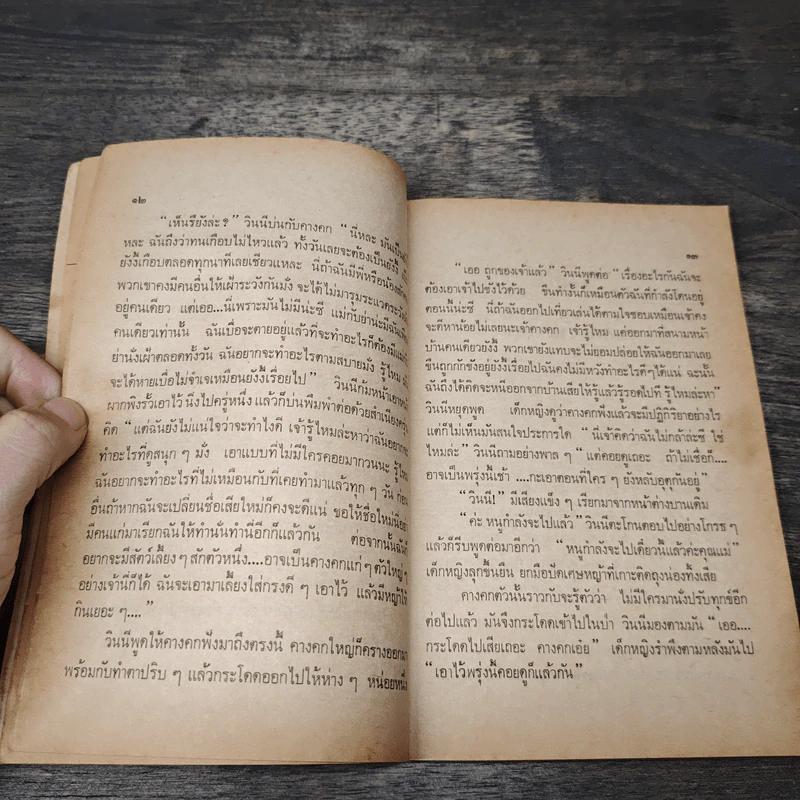 ๑๒
“เห็นรึยังล่ะ ? ” วินนีบ่นกับคางคก “ นี่หละ มันเป็น
หละ ฉันถึงว่าทนเกือบไม่ไหวแล้ว ทั้งวันเลยจะต้องเป็นยังงี้
ยังงี้เกือบตลอดทุกนาทีเลยเชียวแหละ นี่ถ้าฉันมีพี่หรือน้อง
พวกเขาคงมีคนอื่นให้เฝ้าระวังกันมั่ง จะได้ไม่มารุมระแวดระวัง
อยู่คนเดียว แต่เออ...นี่เพราะมันไม่มีน่ะซี แม่กับย่าน่ะมีฉัน
คนเดียวเท่านั้น ฉันเบื่อจะตายอยู่แล้วที่จะทำอะไรก็ต้อง
ย่านั่งเฝ้าตลอดทั้งวัน ฉันอยากจะทำอะไรตามสบายมั่ง รู้ไหม
จะได้หายเบื่อไม่จำเจเหมือนยังงี้เรื่อยไป ” วินนีก้มหน้าเอา
ผากพิงรั้วเอาไว้ นิ่งไปครู่หนึ่ง แล้วก็บ่นพึมพำต่อด้วยสำเนียง
คิด “ แต่ฉันยังไม่แน่ใจว่าจะทำไงดี เจ้ารู้ไหมล่ะหาว่าฉันอยากจะ
ทำอะไรที่ดูสนุก ๆ มั่ง เอาแบบที่ไม่มีใครคอยมากวนนะ รู้ไหม
ฉันอยากจะทำอะไรที่ไม่เหมือนกับที่เคยทำมาแล้วทุก ๆ วัน ก่อน
อื่นถ้าหากฉันจะเปลี่ยนชื่อเสียใหม่ก็คงจะดีแน่ ขอให้ชื่อใหม่
มีคนแก่มาเรียกฉันให้ทำนั่นทำนี่อีกก็แล้วกัน ต่อจากนั้นฉันก็
อยากจะมีสัตว์เลี้ยง ๆ สักตัวหนึ่ง....อาจเป็นคางคกแก่ ๆ ตัวใหญ่ ๆ
อย่างเจ้านี่ก็ได้ ฉันจะเอามาเลี้ยงใส่กรงดี ๆ เอาไว้ แล้วมีหญ้าให้
กินเยอะ ๆ....”
วินนีพูดให้คางคกฟังมาถึงตรงนี้ คางคกใหญ่ก็ครางออกมา
พร้อมกับทำตาปริบ ๆ แล้วกระโดดออกไปให้ห่าง ๆ หน่อยหนึ่ง
๑๓
“เออ ถูกของเจ้าแล้ว” วินนีพูดต่อ “ เรื่องอะไรกันฉันจะ
ต้องเอาเจ้าไปขังไว้ด้วย ขืนทำงั้นก็เหมือนตัวฉันที่กำลังโดนอยู่
ตอนนี้น่ะซี นี่ถ้าฉันออกไปเที่ยวเล่นได้ตามใจชอบเหมือนเจ้าคง
จะดีหาน้อยไม่เลยนะเจ้าคางคก เจ้ารู้ไหม แต่ออกมาที่สนามหน้า
บ้านคนเดียวยังงี้ พวกเขายังแทบจะไม่ยอมปล่อยให้ฉันออกมาเลย
ขืนถูกกักขังอยู่ยังงี้เรื่อยไปฉันคงไม่มีหวังทำอะไรดีๆได้แน่ ฉะนั้น
ฉันถึงได้คิดจะหนีออกจากบ้านเสียให้รู้แล้วรู้รอดไปที รู้ไหมล่ะหา”
วินนีหยุดพูด เด็กหญิงดูว่าคางคกฟังแล้วจะมีปฏิกิริยาอย่างไร
แต่ก็ไม่เห็นมันสนใจประการใด “ นี่เจ้าคิดว่าฉันไม่กล้าล่ะซี ใช่
ไหมล่ะ ” วินนีถามอย่างพาล ๆ “ แต่คอยดูเถอะ ถ้าไม่เชื่อก็....
อาจเป็นพรุ่งนี้เช้า ....กะเอาตอนที่ใคร ๆ ยังหลับอุตุกันอยู่”
“วินนี!” มีเสียงแข็ง ๆ เรียกมาจากหน้าต่างบานเดิม
“ค่ะ หนูกำลังจะไปแล้ว ” วินนีตะโกนตอบไปอย่างโกรธ ๆ
แล้วก็รีบพูดต่อมาอีกว่า “หนูกำลังจะไปเดี๋ยวนี้แล้วค่ะคุณแม่”
เด็กหญิงลุกขึ้นยืน ยกมือปัดเศษหญ้าที่เกาะติดถุงน่องทิ้งเสีย
คางคกตัวนั้นราวกับจะรู้ตัวว่า ไม่มีใครมานั่งปรับทุกข์อีก
ต่อไปแล้ว มันจึงกระโดดเข้าไปในป่า วินนีมองตามมัน “ เออ....
กระโดดไปเสียเถอะ คางคกเอ๋ย” เด็กหญิงรำพึงตามหลังมันไป
“เอาไว้พรุ่งนี้คอยดูก็แล้วกัน”